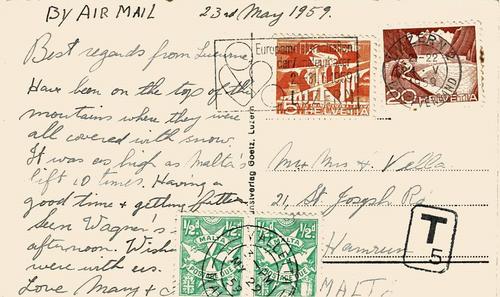 BY AIR MAIL
23rd May 1959.
Best regards from Lucerne
Have been on the top of the
mountains where they were
all covered with snow.
It was as high as Malta's
lift 10 times. Having a
good time & getting fatter
Seen Wagner's
afternoon. Wish
were with us.
Love Mary &
HELVETIA
20 HELVETIA
LUZERN
Goetz, Luzern
Mr & Mrs J. Vella
21, St. Joseph Rd
Hamrun
MALTA
T
5
½d ½d
MALTA MALTA
POSTAGE DUE POSTAGE DUE
VALLETTA